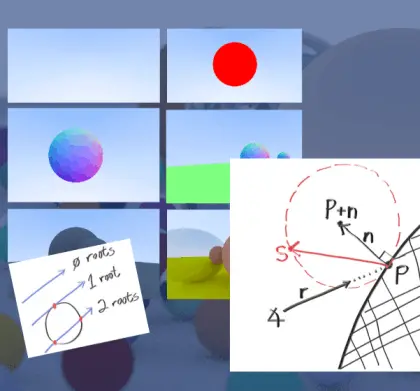 0 roots
1 root
2 roots
P+n
n
S
P
r